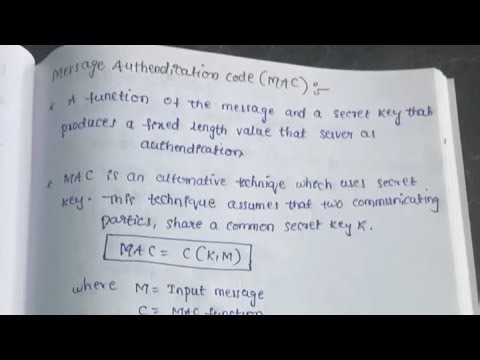 Message Authendication code (MAC) :-
* A function of the message and a secret key that
produces a fixed length value that server as
authendication
* MAC is an alternative techniqe which uses secret
key. This technique assumes that two communicating
parties, share a common secret key K.
MAC = C(K,M)
where M = Input message
C = MAC function